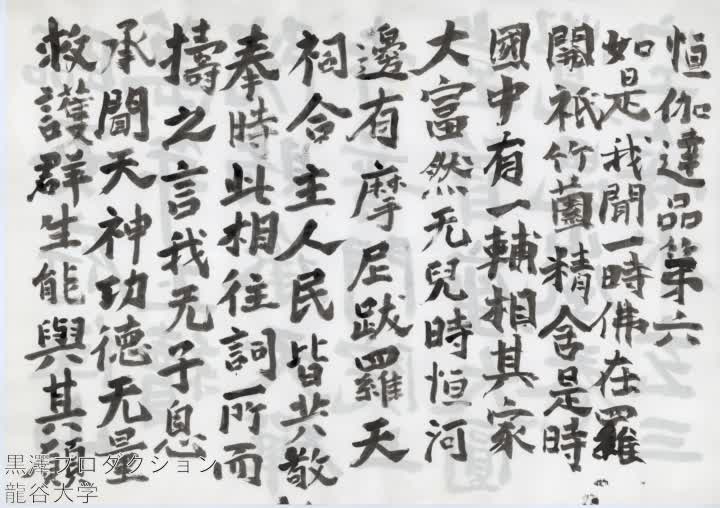 恒伽達品第六
如是我聞一時佛在羅
閱祇竹薗精舍是時
國中有一輔相其家
大富然无兒時恒河
邊有摩尼跋羅天
祠合主人民皆共敬
奉時此相往詞所而
擣之言我无子息
承聞天神功德无量
救護群生能與其願
黒澤プロダクション
龍谷大学